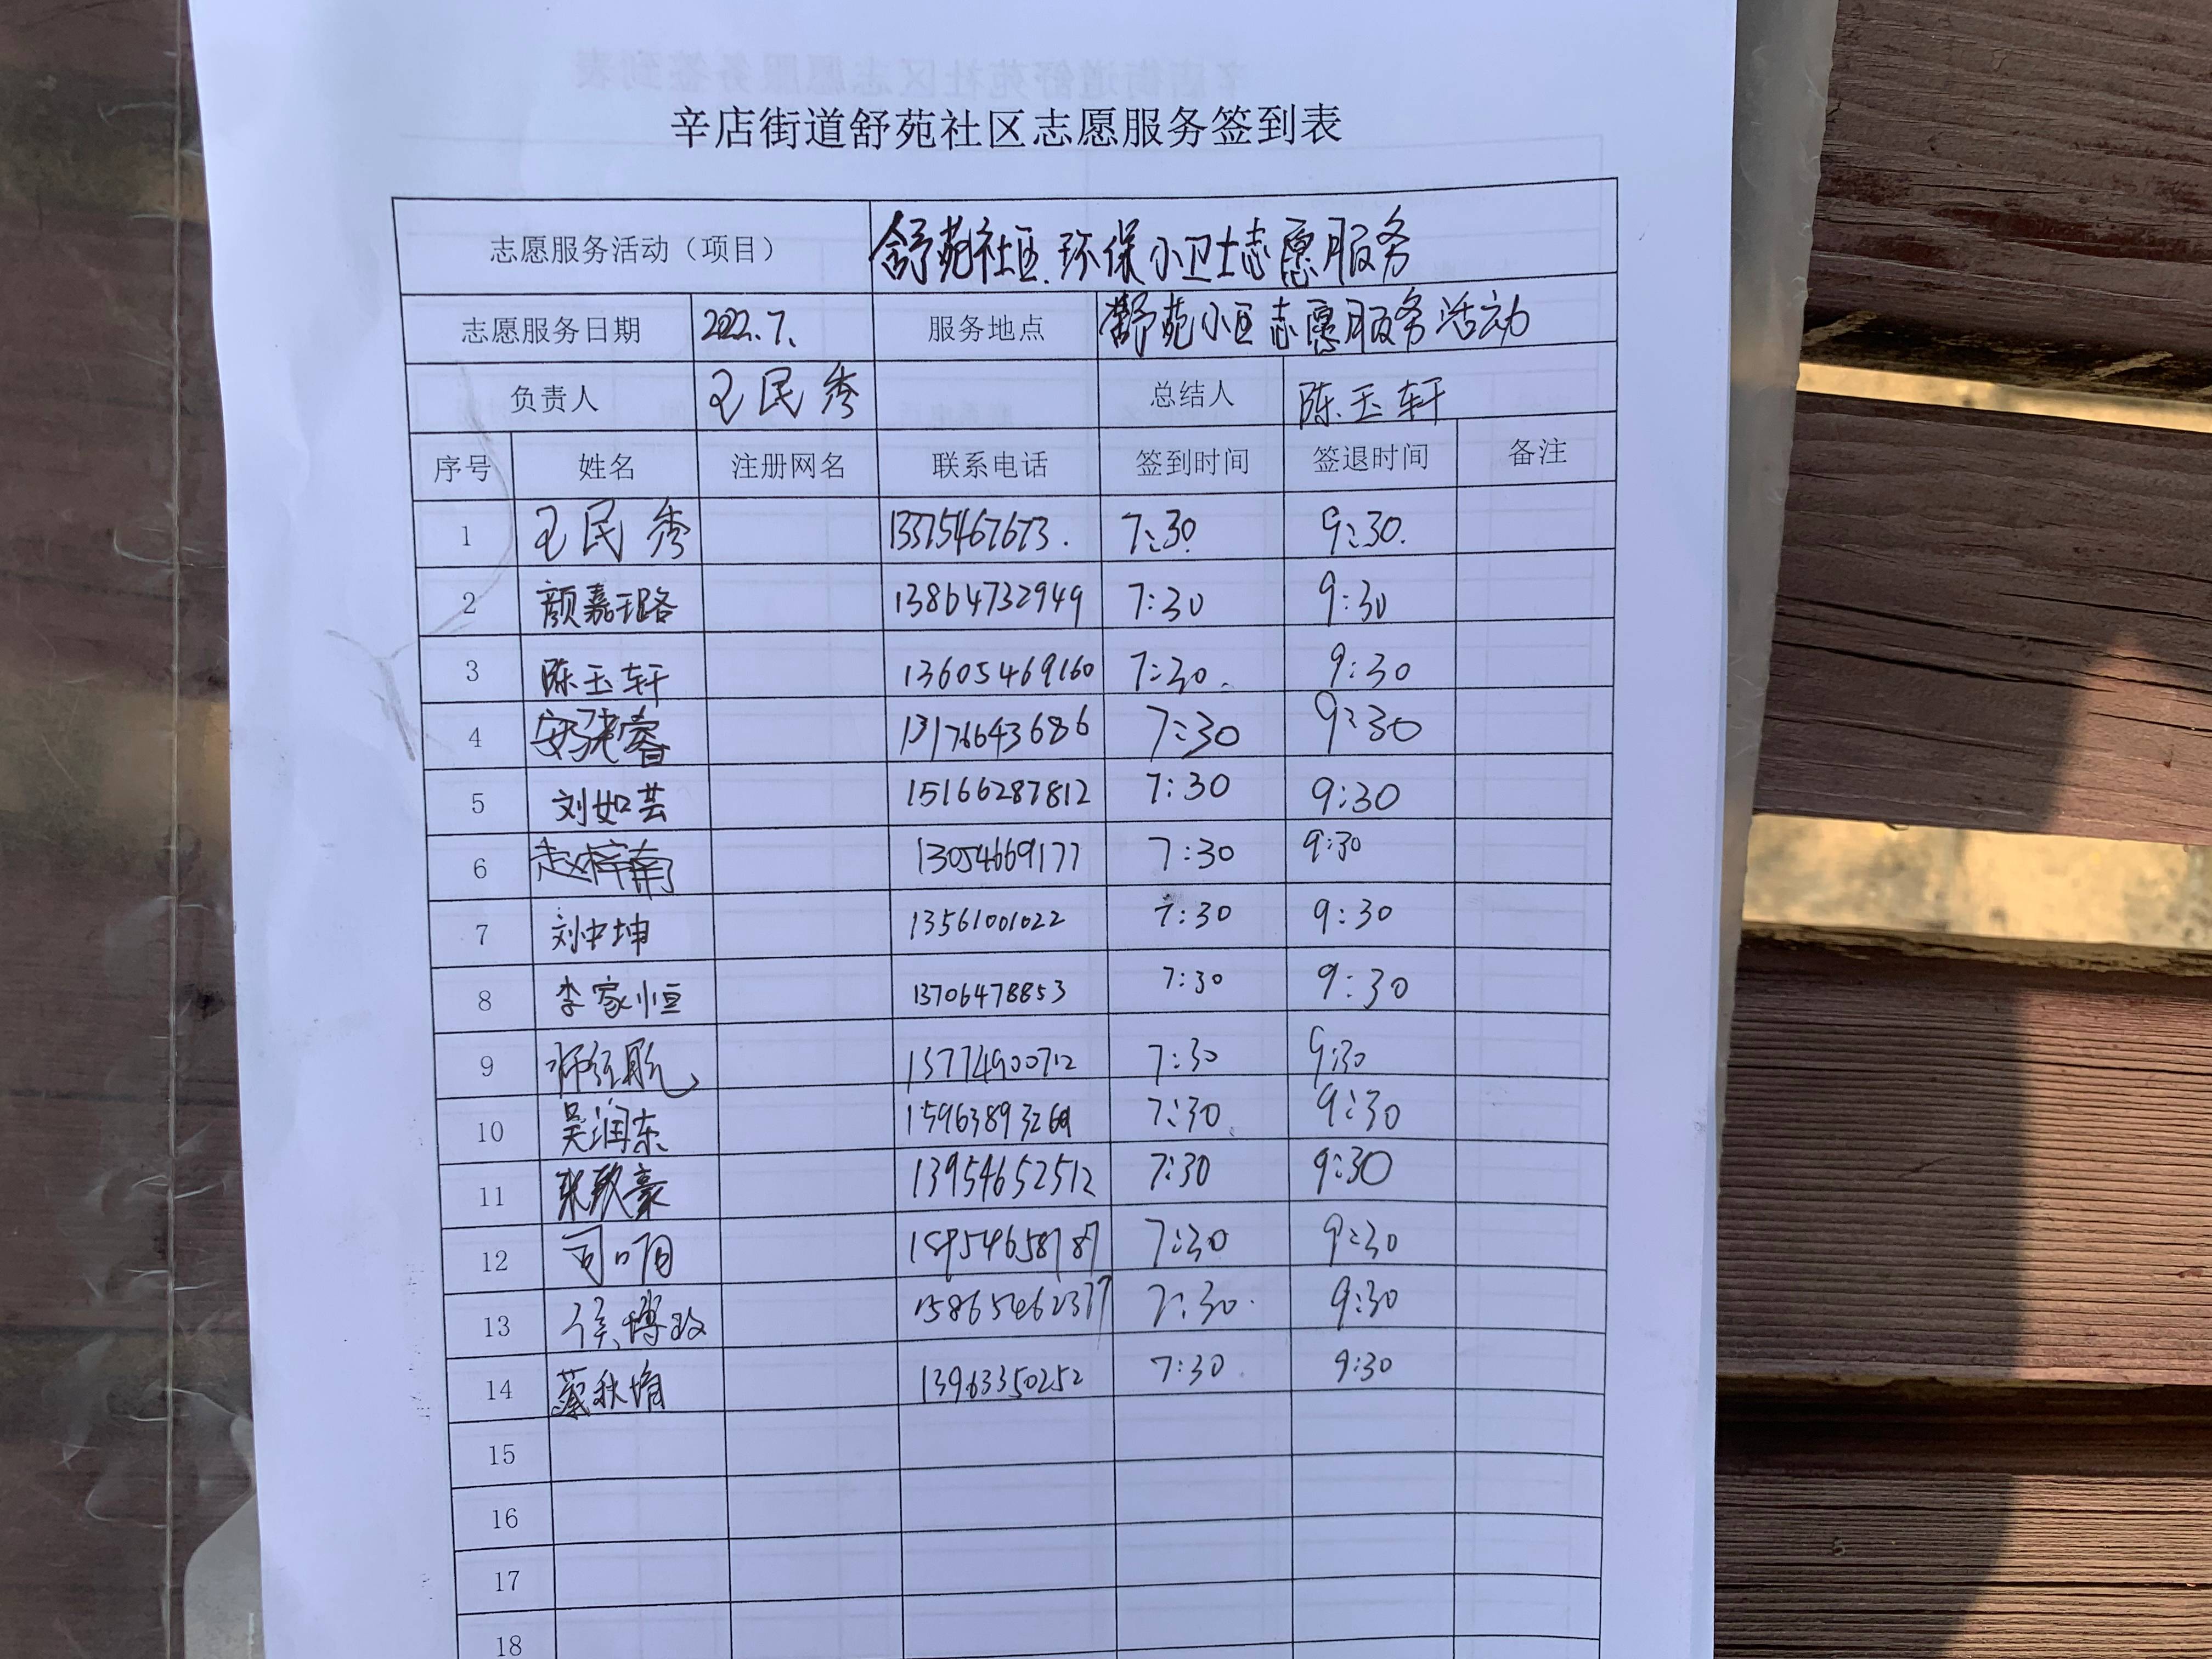 辛店街道舒苑社区志愿服务签到表
志愿服务活动（项目） 舒苑社区环保小卫士志愿服务
志愿服务日期 2022.7. 服务地点 舒苑小区志愿服务活动
负责人 王民秀 总结人 陈玉轩
序号 姓名 注册网名 联系电话 签到时间 签退时间 备注
1 王民秀 13375467673. 7:30 9:30.
2 颜嘉璐 13864732949 7:30 9:30
3 陈玉轩 13605469160 7:30. 9:30
4 13176643686 7:30 9:30
5 刘如芸 15166287812 7:30 9:30
6 赵梓南 13054669177 7:30 9:30
7 刘中坤 13561001022 7:30 9:30
8 李家恒 13706478853 7:30 9:30
9 7:30 9:30
10 吴润东 7:30 9:30
11 13954652512 7:30 9:30
12 7:30 9:30
13 7:30 9:30
14 13963350252 7:30 9:30
15
16
17
18